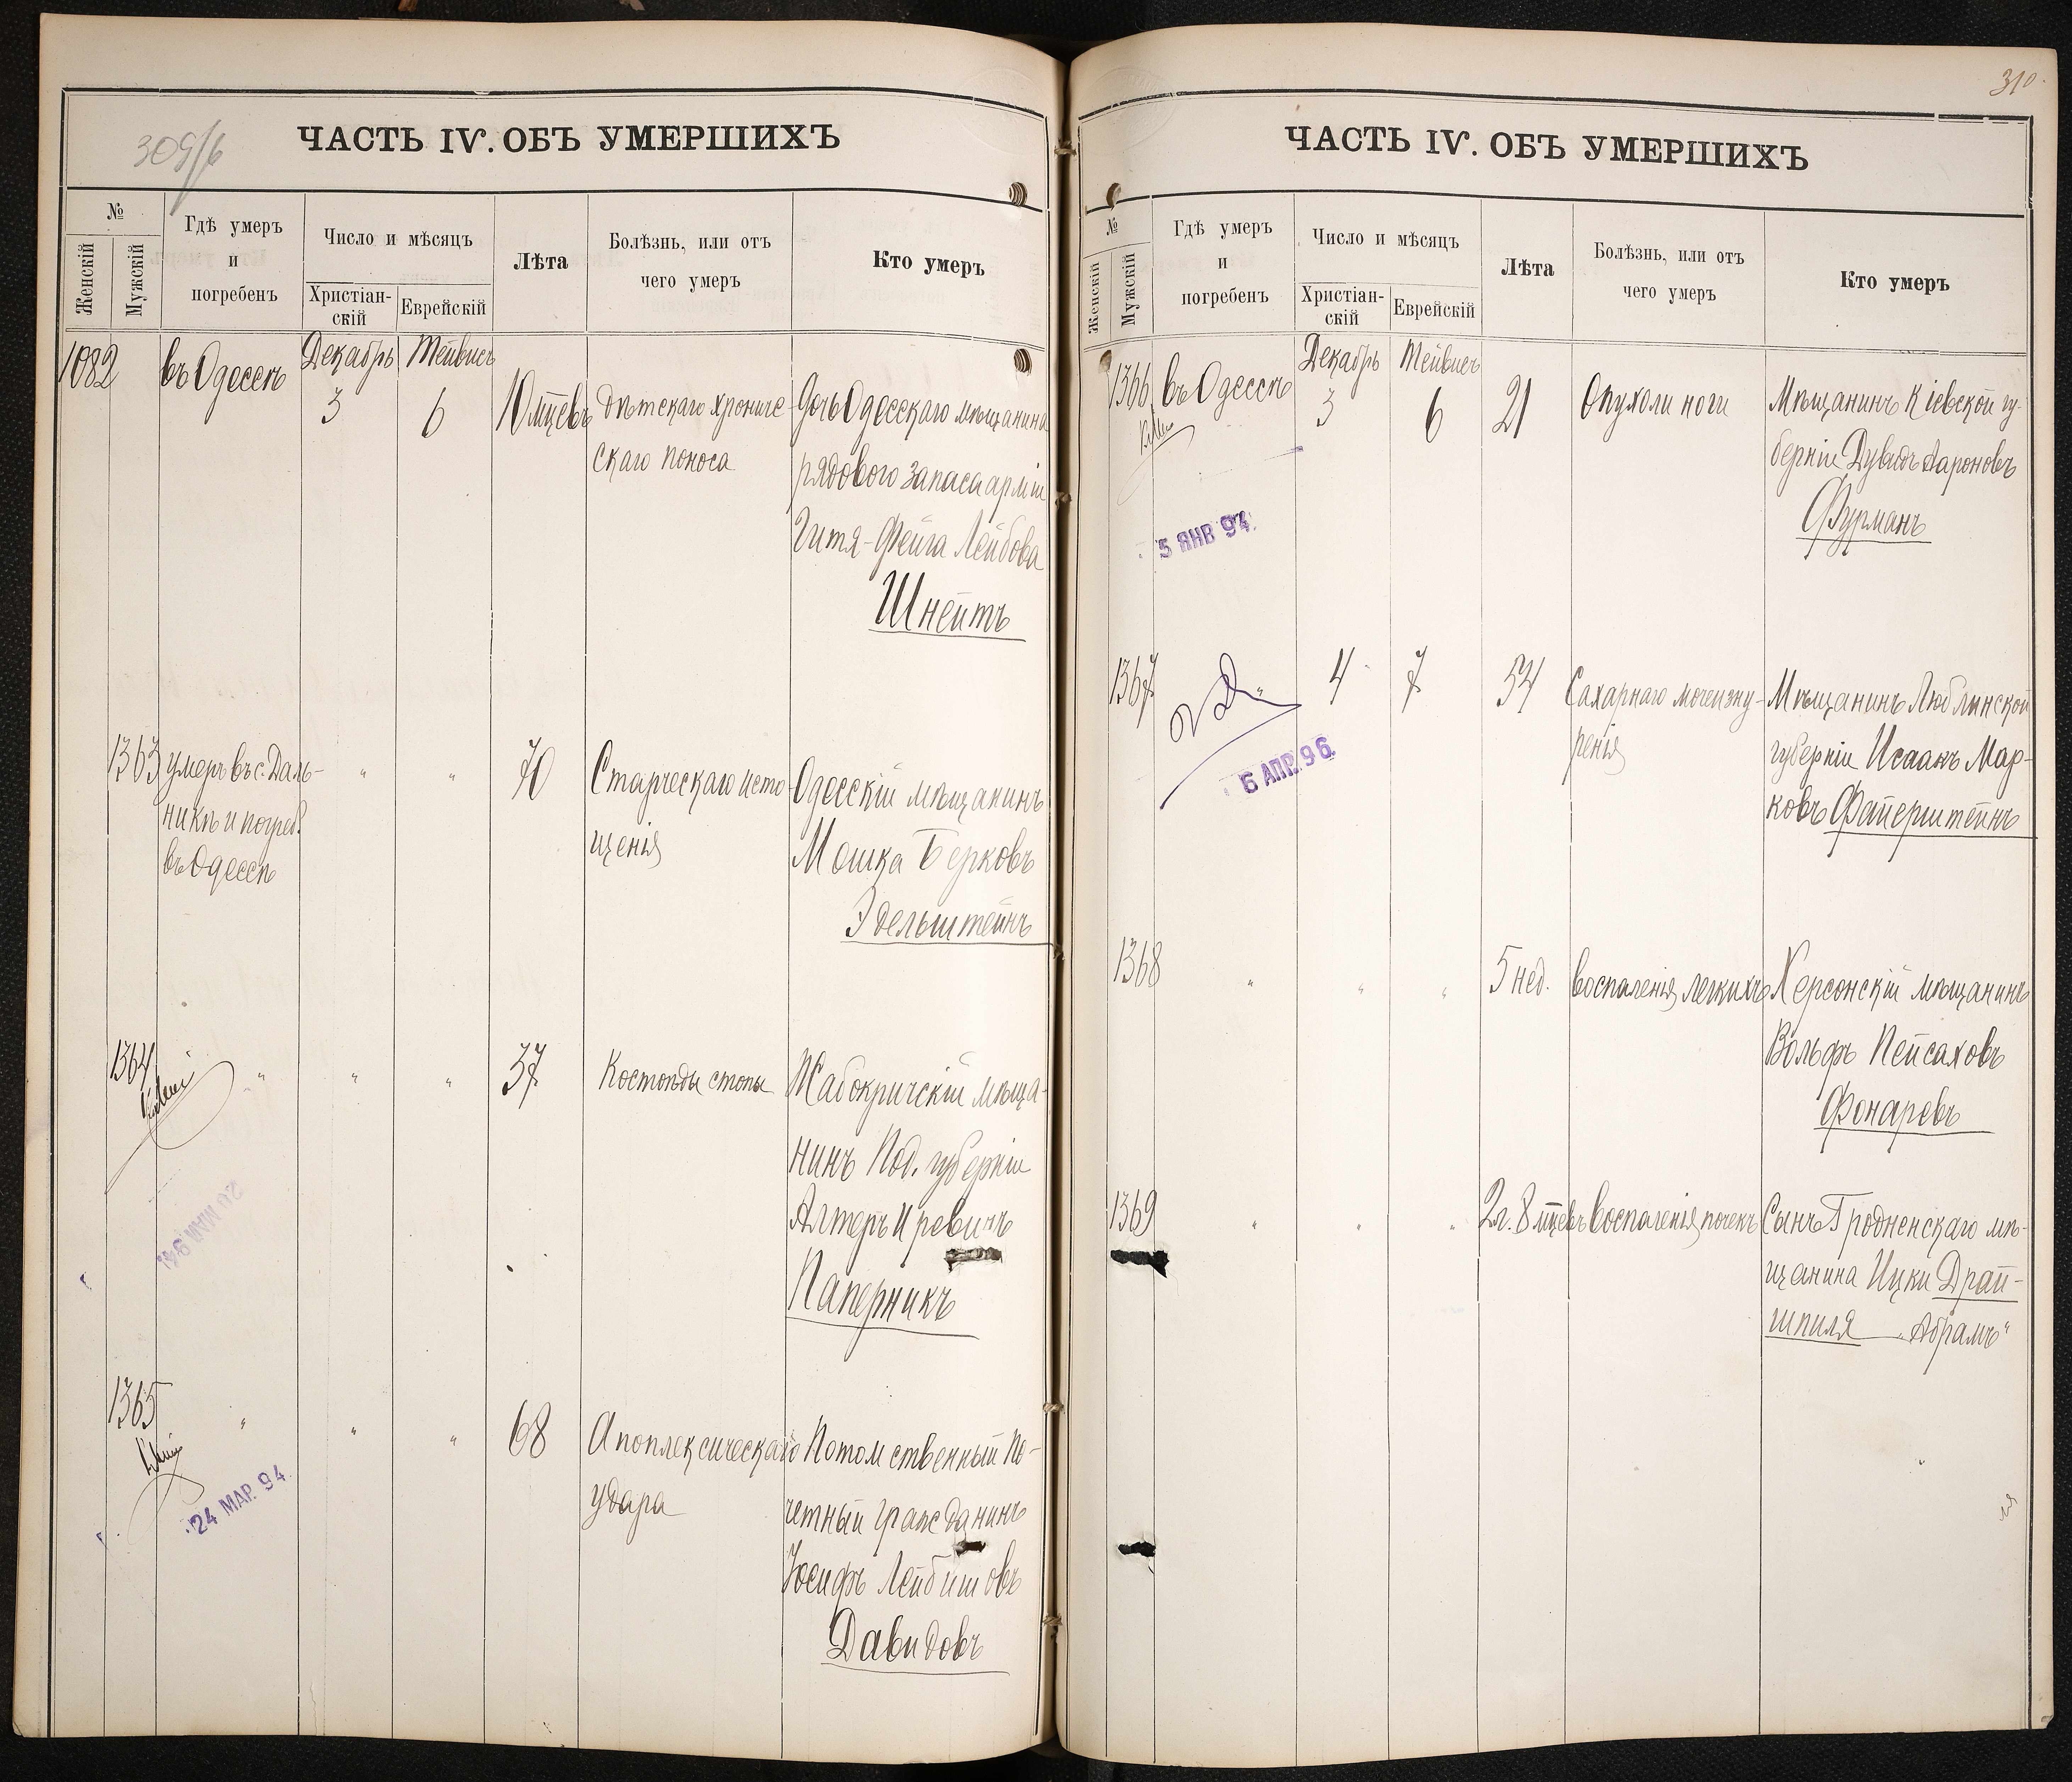 309/6
ЧАСТЬ IV. ОБЪ УМЕРШИХЪ
№
Женскій
Мужскій
Гдѣ умеръ
и
погребенъ
Число и мѣсяцъ
Христіан-
скій
Еврейскій
Лѣта
Болѣзнь, или отъ
чего умеръ
Кто умеръ
1082
въ Одессѣ
Декабрь
3
Тейвисъ
6
10 мцевъ
дѣтскаго хрониче-
скаго поноса
Дочь Одесскаго мѣщанина
рядового запаса арміи
Гитя-Фейга Лейбова
Шнейтъ
1363
умеръ въ с. Даль-
никѣ и погреб.
въ Одессѣ
"
"
70
Старческаго исто-
щенія
Одесскій мѣщанинъ
Мошка Берковъ
Эдельштейнъ
1364
"
"
"
37
Костоѣды стопы
Жабокричскій мѣща-
нинъ Под. губерніи
Алтеръ Иревичъ
Паперникъ
1365
"
"
"
68
Апоплексическаго
удара
Потомственный По-
четный гражданинъ
Іосифъ Лейбишовъ
Давидовъ
24 МАР. 94
310
ЧАСТЬ IV. ОБЪ УМЕРШИХЪ
№
Женскій
Мужскій
Гдѣ умеръ
и
погребенъ
Число и мѣсяцъ
Христіан-
скій
Еврейскій
Лѣта
Болѣзнь, или отъ
чего умеръ
Кто умеръ
1366
въ Одессѣ
Декабрь
3
Тейвисъ
6
21
Опухоли ноги
Мѣщанинъ Кіевской гу-
берніи Дувидъ Аароновъ
Фурманъ
5 ЯНВ 94.
1367
"
4
7
54
Сахарнаго мочеизну-
ренія
Мѣщанинъ Люблинской
губерніи Исаакъ Мар-
ковъ Файерштейнъ
6 АПР. 96.
1368
"
"
"
5 нед.
воспаленія легкихъ
Херсонскій мѣщанинъ
Вольфъ Пейсаховъ
Фонаревъ
1369
"
"
"
2 г. 8 мцевъ
воспаленія почекъ
Сынъ Гродненскаго мѣ-
щанина Ицки Драй-
шпиля „Абрамъ“